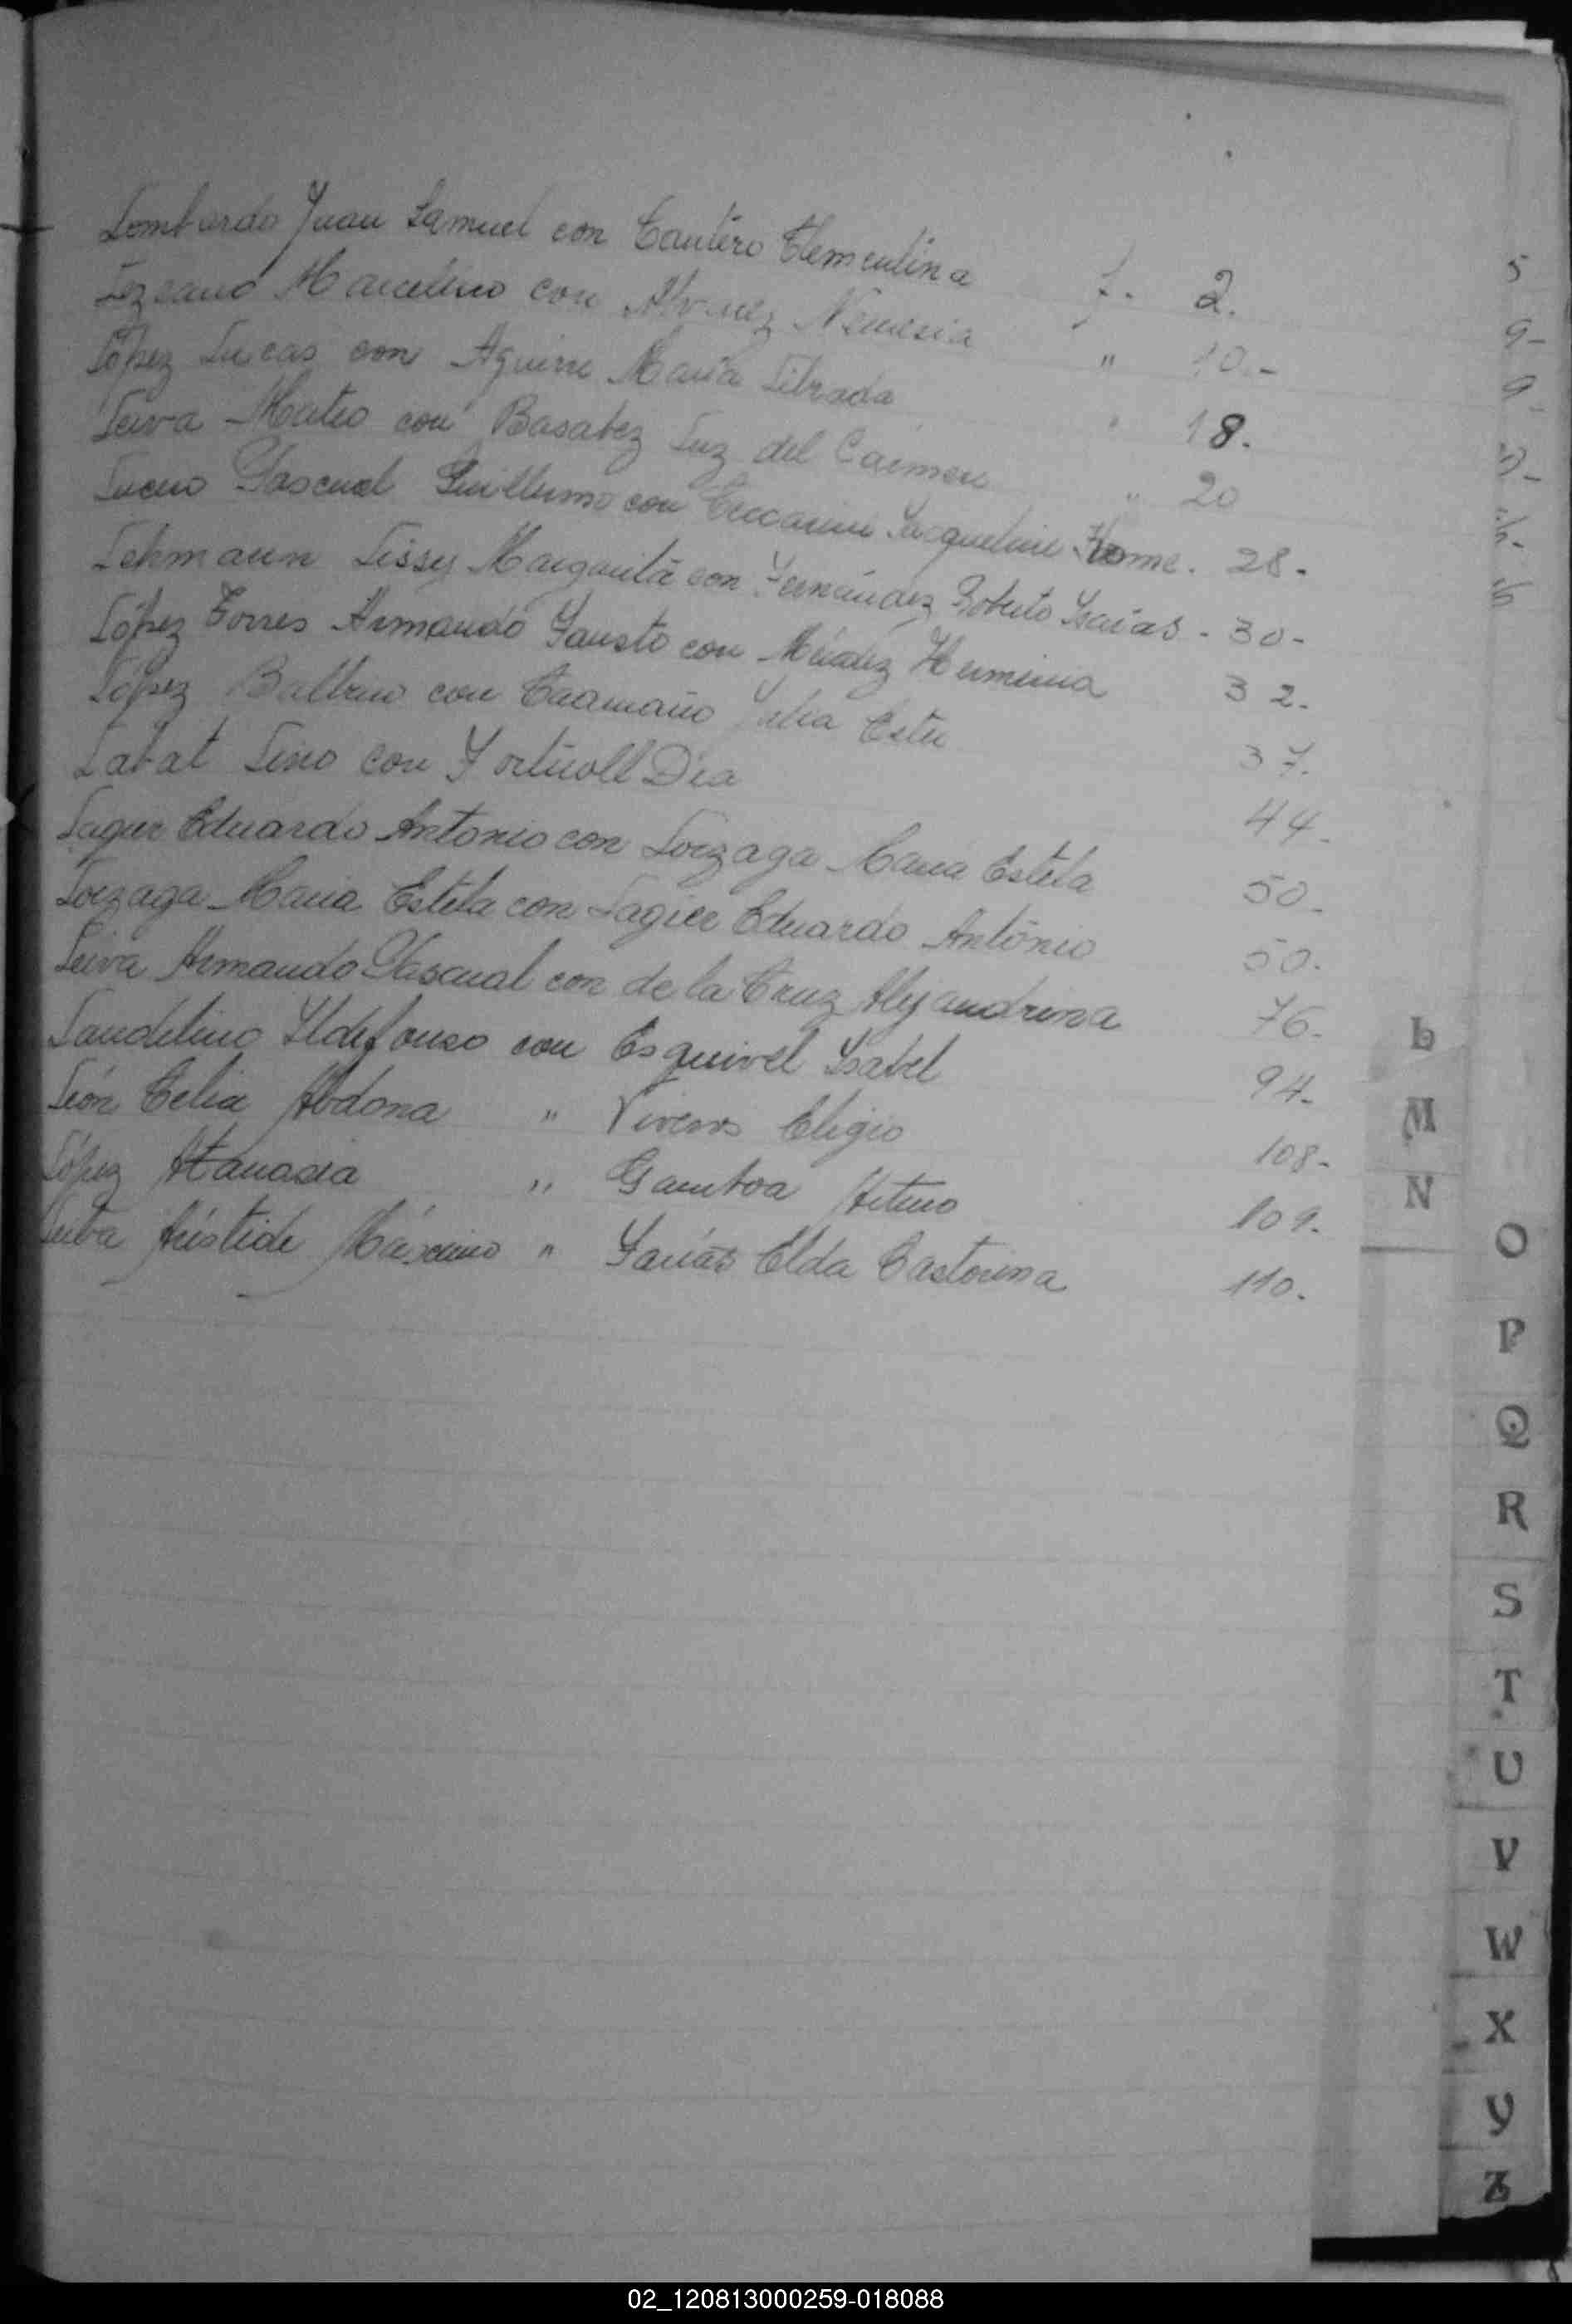 Lombardo Juan Samuel con Cantero Clementina f. 2.
Lezcano Marcelino con Alvarez Nemesia " 10.-
López Lucas con Aguirre María Librada " 18.
Leiva Mateo con Basabez Luz del Carmen " 20
Lucero Pascual Guillermo con Jacqueline 28.
Lehmann Lissy Margarita con Fernández Roberto Isaías - 30-
López Torres Armando Fausto con Méndez Herminia 32.
López Balbino con Caamaño Julia Ester 37.
Labat Lino con Dea 44.
Lagier Eduardo Antonio con Loizaga María Estela 50.
Loizaga María Estela con Lagier Eduardo Antonio 50.
Leiva Armando Pascual con de la Cruz Alejandrina 76.
Laudelino Ildefonso con Esquivel Isabel 94.
León Celia Abdona " Viveros Eligio 108.
López Atanasia " Gamboa 109.
Leiva Arístide Máximo " Farías Elda Castorina 110.
5
9-
9-
L
M
N
O
P
Q
R
S
T
U
V
W
X
Y
Z
02_120813000259-018088